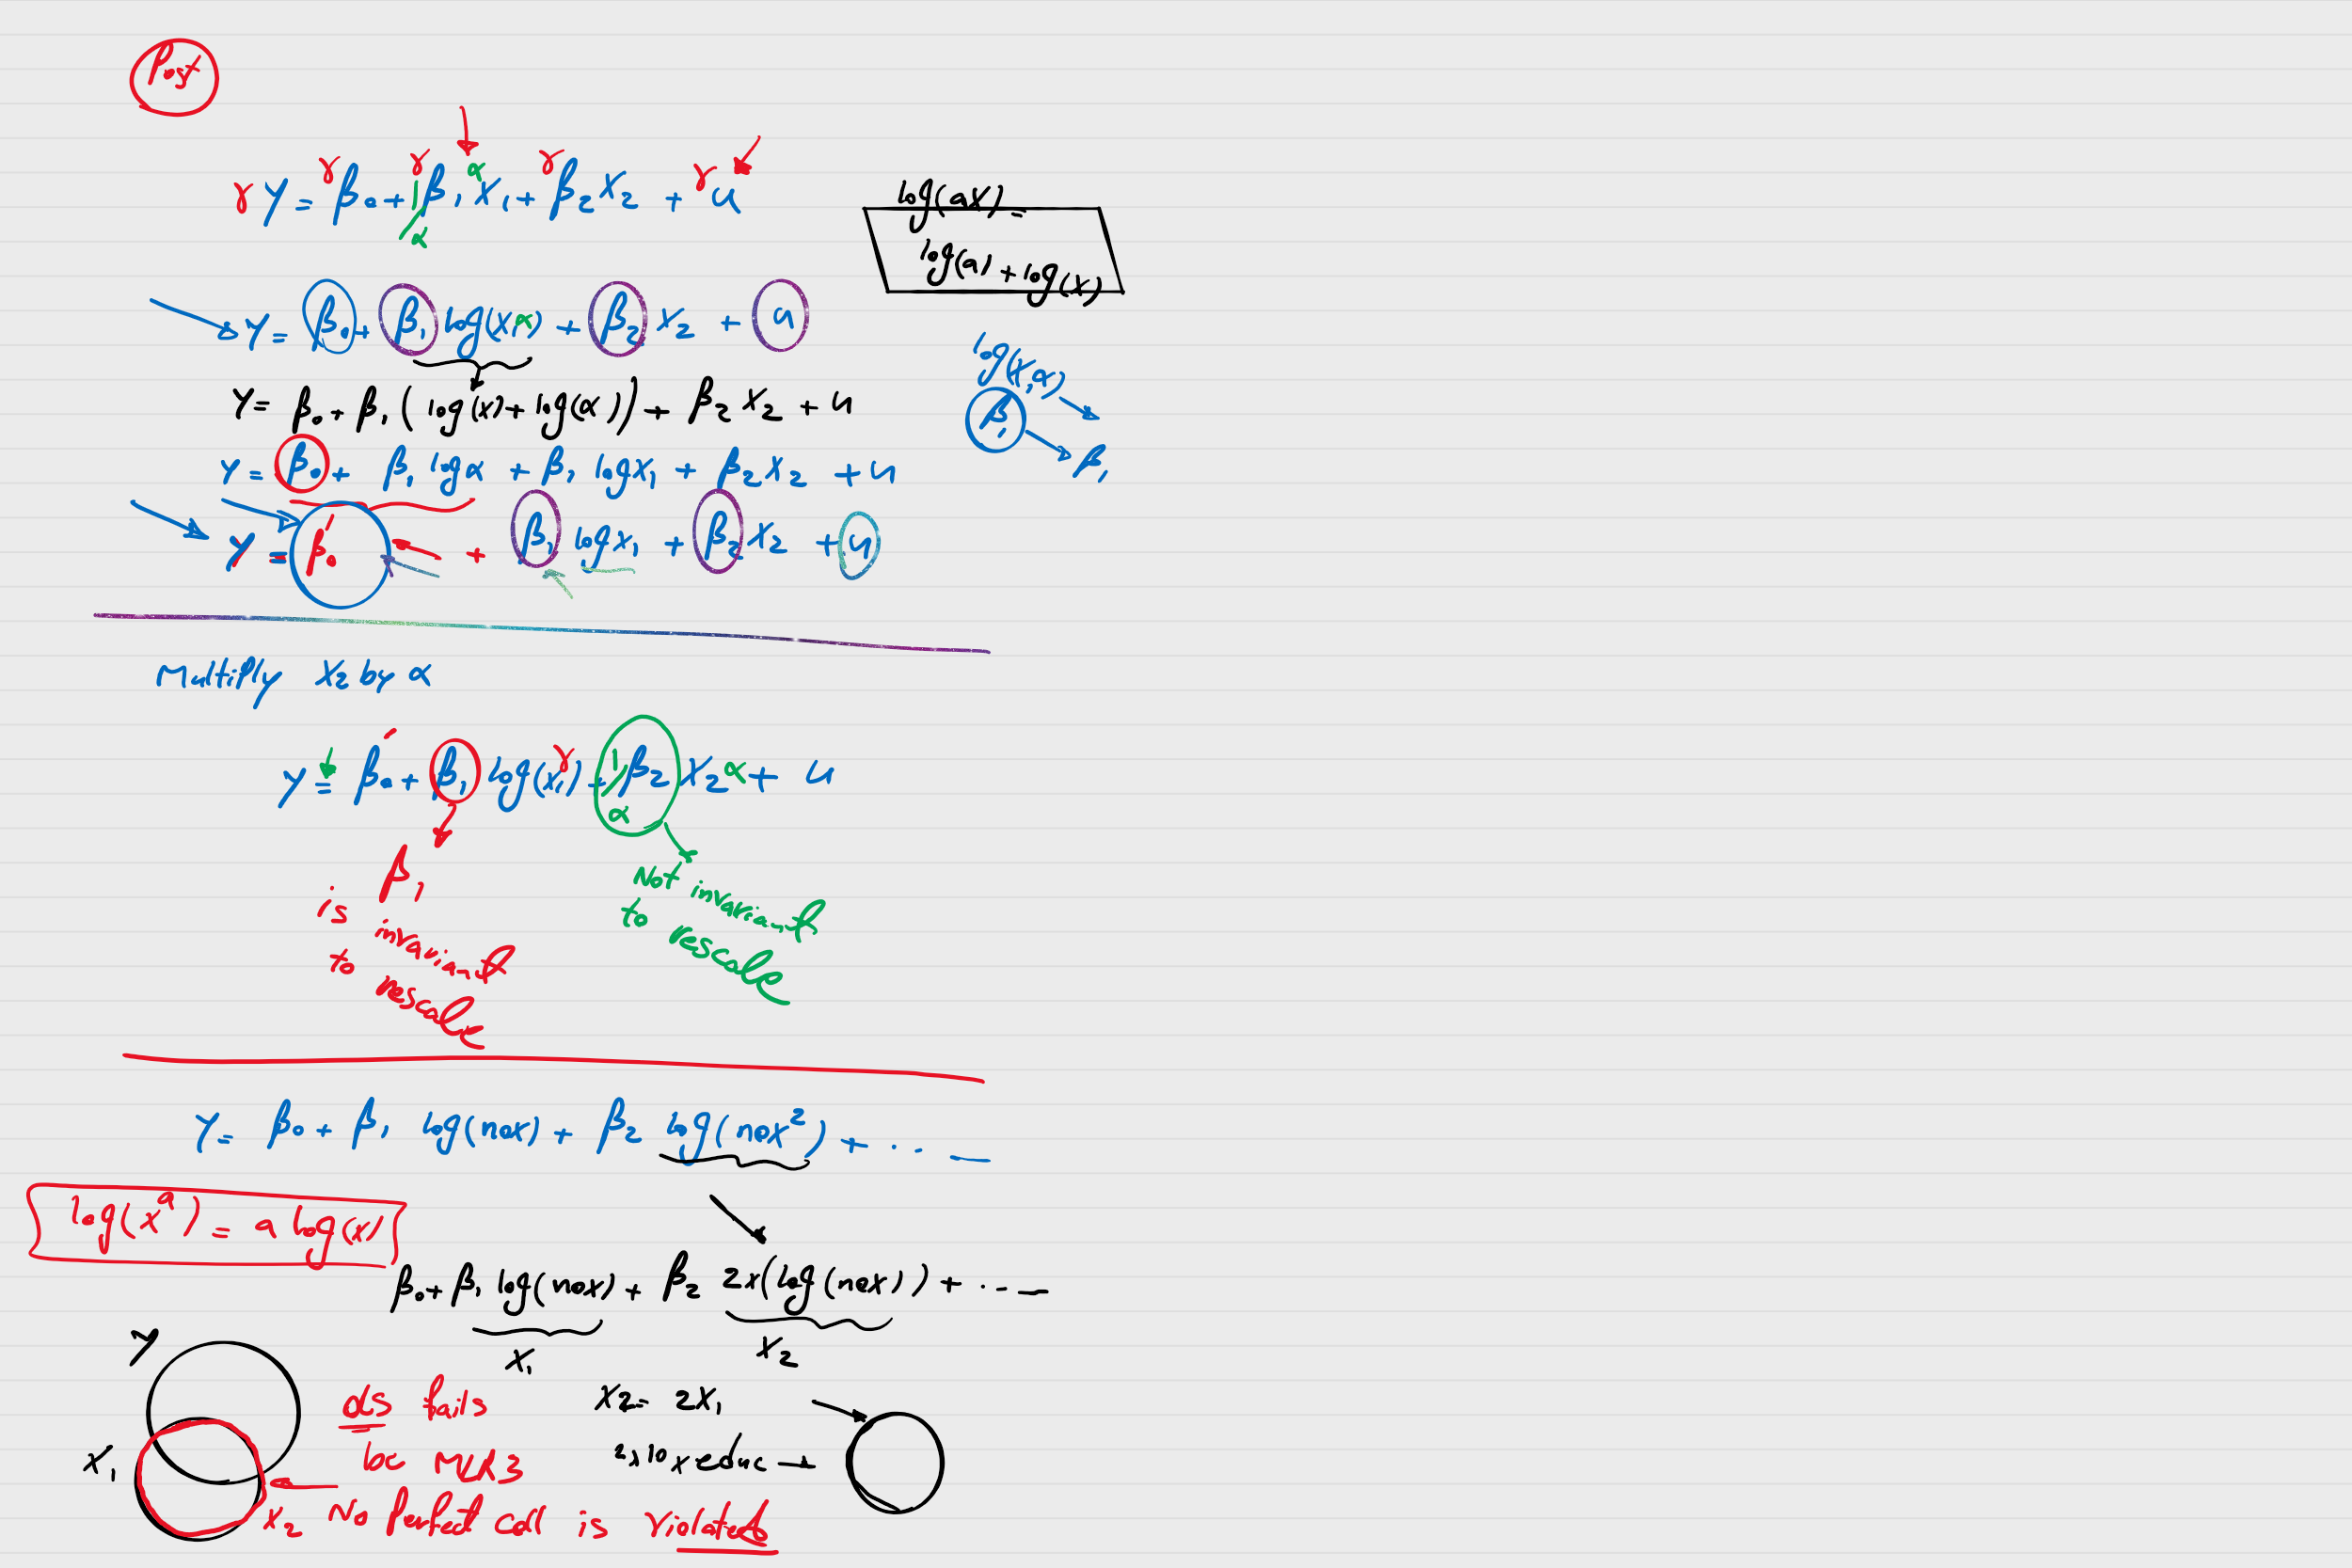 Post
γY = γβ₀ + γ1/α β₁ α X₁ + γβ₂X₂ + γu
log(aX) =
log(a) + log(x)
Y = β₀ + β₁ log(X₁α) + β₂ X₂ + u
log(X₁α)
β₁ → β₁
Y = β₀ + β₁ (log(x) + log(α)) + β₂ X₂ + u
Y = β₀ + β₁ logα + β₁ logX₁ + β₂X₂ + u
Y = β₀′ + β₁ logX₁ + β₂X₂ + u
Multiply X₂ by α
Y = β₀′ + β₁ log(X₁γ) + 1/α β₂ X₂α + u
β₁
is invariant
to rescale
Not invariant
to rescale
Y = β₀ + β₁ log(nox) + β₂ log(nox²) + ...
log(xᵃ) = a log(x)
β₀ + β₁ log(nox) + β₂ 2x(log(nox)) + ...
X₁
X₂
Y
ols fails
X₂ = 2X₁
X₁
bc MLR3
2x10xeduc →
X₂
No Perfect coll is violated